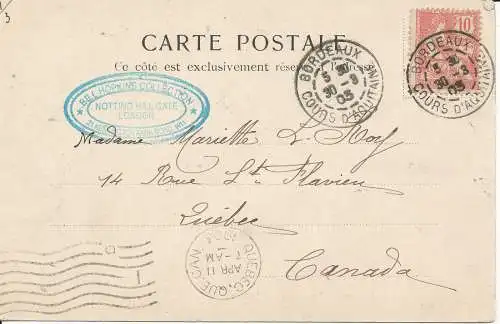 1/3
CARTE POSTALE
Ce côté est exclusivement réservé à l'adresse
10
BORDEAUX
5 30
30 - 3
03
COURS D'AQUITAINE
BORDEAUX
5 30
30 - 3
03
COURS D'AQUITAINE
HOPKINS COLLECTION
NOTTING HILL GATE
LONDON
Madame Mariette L. Roy
14 Rue St. Flavien
Québec
Canada
QUEBEC, QUE. CAN.
APR 11
-AM